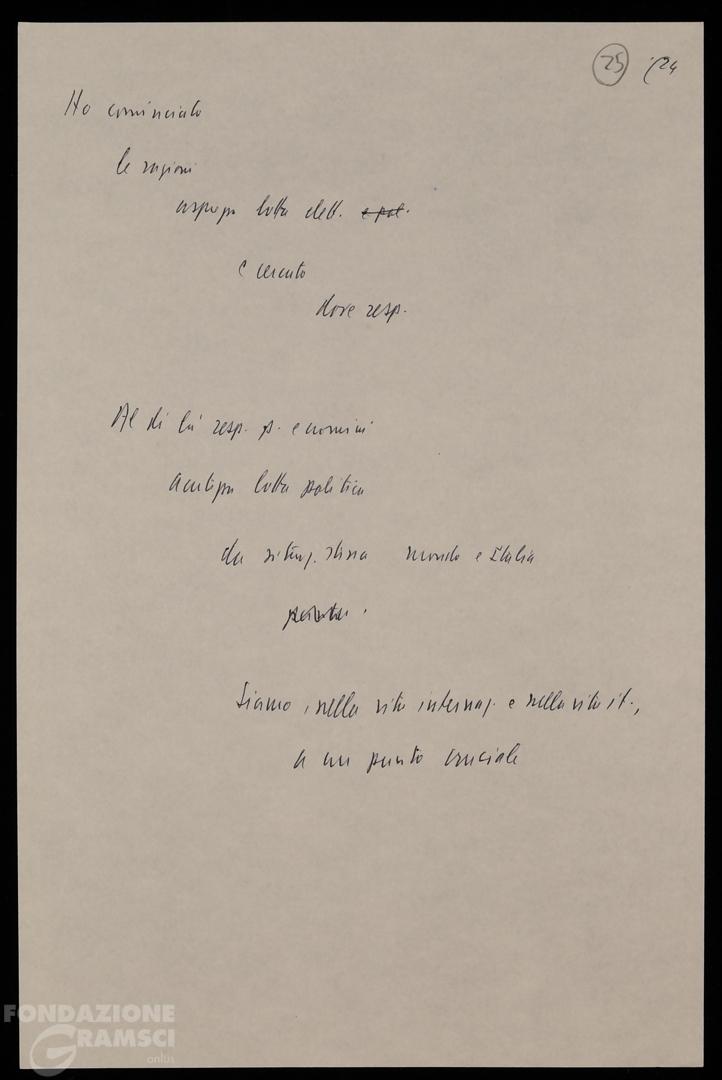 25 1/24
Ho cominciato
le ragioni
asprezza lotta elett. e pol.
e cercato
dove resp.
Al di là resp. p. e uomini
acutezza lotta politica
da situaz. stessa mondo e Italia
Siamo, nella vita internaz. e nella vita it.,
a un punto cruciale
FONDAZIONE
GRAMSCI
onlus